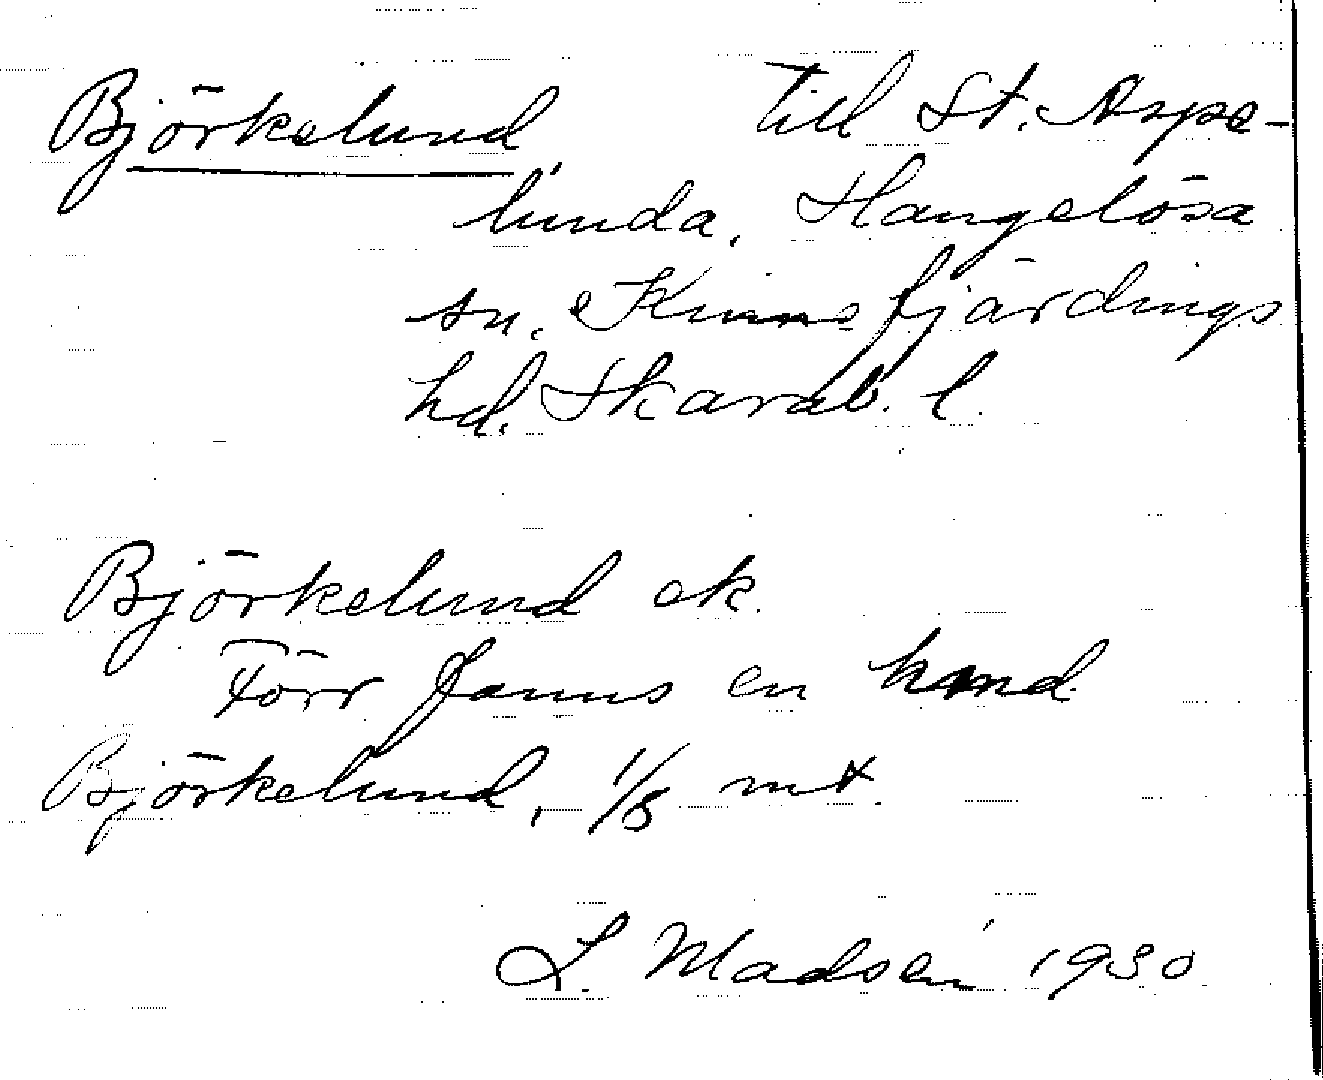 Björkelund till St. Aspe-
lunda, Hangelösa
sn. Kinnefjärdings
hd. Skarab. l.
Björkelund ek.
Förr fanns en hmd.
Björkelund, 1/8 mt.
L. Madsén 1930